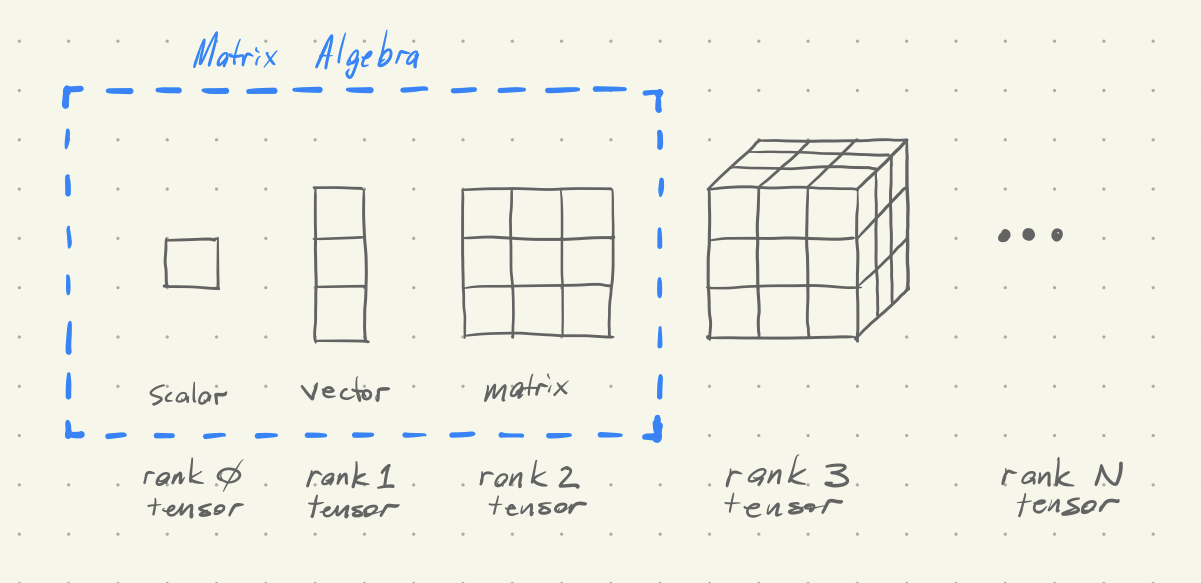 Matrix Algebra
scalar
vector
matrix
rank 0
tensor
rank 1
tensor
rank 2
tensor
rank 3
tensor
rank N
tensor